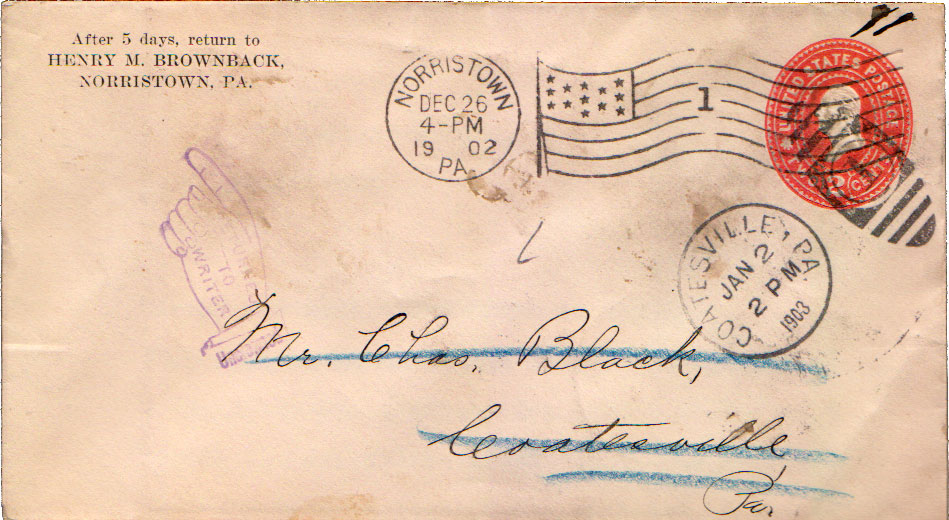 After 5 days, return to
HENRY M. BROWNBACK,
NORRISTOWN, PA.
NORRISTOWN
DEC 26
4-PM
19 02
PA.
1
UNITED STATES POSTAGE
COATESVILLE, PA
JAN 2
2 PM
1903
TO
WRITER
Mr. Chas. Black,
Coatesville,
Pa.